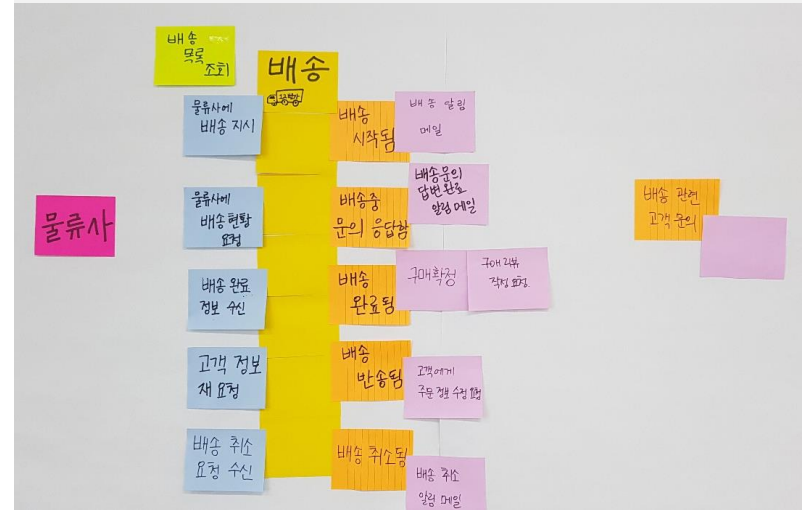 배송
목록
조회
배송
물류사에
배송 지시
배송
시작됨
배송 알림
메일
물류사
물류사에
배송현황
요청
배송중
문의 응답함
배송문의
답변완료
알림 메일
배송 관련
고객 문의
배송 완료
정보 수신
배송
완료됨
구매확정
구매 리뷰
작성 요청
고객 정보
재 요청
배송
반송됨
고객에게
주문 정보 수정 요청
배송 취소
요청 수신
배송 취소됨
배송 취소
알림 메일